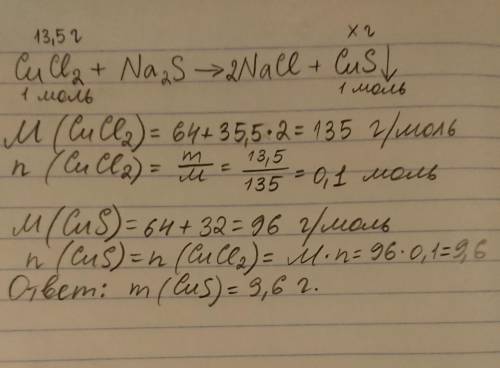 13,5 г x г
CuCl₂ + Na₂S → 2NaCl + CuS↓
1 моль 1 моль
M (CuCl₂) = 64 + 35,5 · 2 = 135 г/моль
n (CuCl₂) = m/M = 13,5/135 = 0,1 моль
M (CuS) = 64 + 32 = 96 г/моль
n (CuS) = n (CuCl₂) = M · n = 96 · 0,1 = 9,6
Ответ: m (CuS) = 9,6 г.